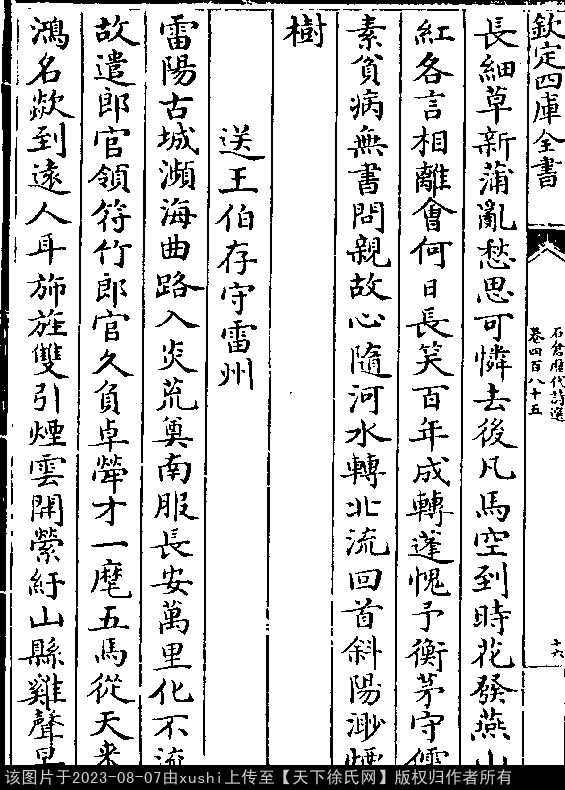 欽定四庫全書
石倉歷代詩選
卷四百八十五
十六
長細草新蒲亂愁思可憐去後凡馬空到時花發燕山
紅各言相離會何日長笑百年成轉蓬愧予衡茅守儒
素貧病無書問親故心隨河水轉北流回首斜陽渺煙
樹
送王伯存守雷州
雷陽古城瀕海曲路入炎荒奠南服長安萬里化不流
故遣郎官領符竹郎官久負卓犖才一麾五馬從天來
鴻名欻到遠人耳斾旌雙引煙雲開縈紆山縣雞聲
该图片于2023-08-07由xushi上传至【天下徐氏网】版权归作者所有